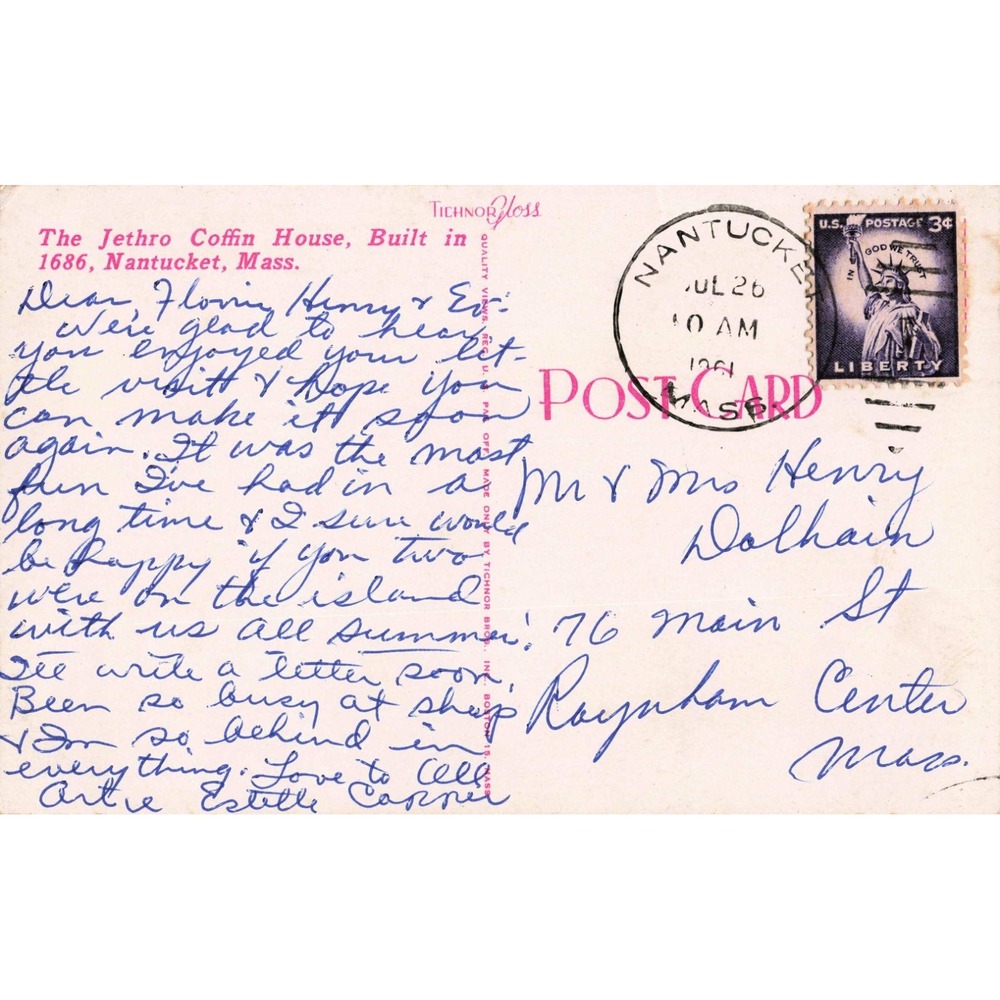 TICHNOR Gloss
The Jethro Coffin House, Built in
1686, Nantucket, Mass.
Dear Henry &
We're glad to hear
you enjoyed your lit-
tle visit & hope you
can make it soon
again. It was the most
fun I've had in a
long time & I sure would
be happy if you two
were on the island
with us all summer!
I'll write a letter soon.
Been so busy at shop
& I'm so behind in
everything. Love to All
Artie Estelle
QUALITY VIEWS REG. U. S. PAT. OFF. MADE ONLY BY TICHNOR BROS., INC., BOSTON 15, MASS.
NANTUCKET
JUL 26
10 AM
1961
MASS
U.S. POSTAGE 3¢
IN GOD WE TRUST
LIBERTY
POST CARD
Mr & Mrs Henry
Dolhain
76 Main St
Raynham Center
Mass.